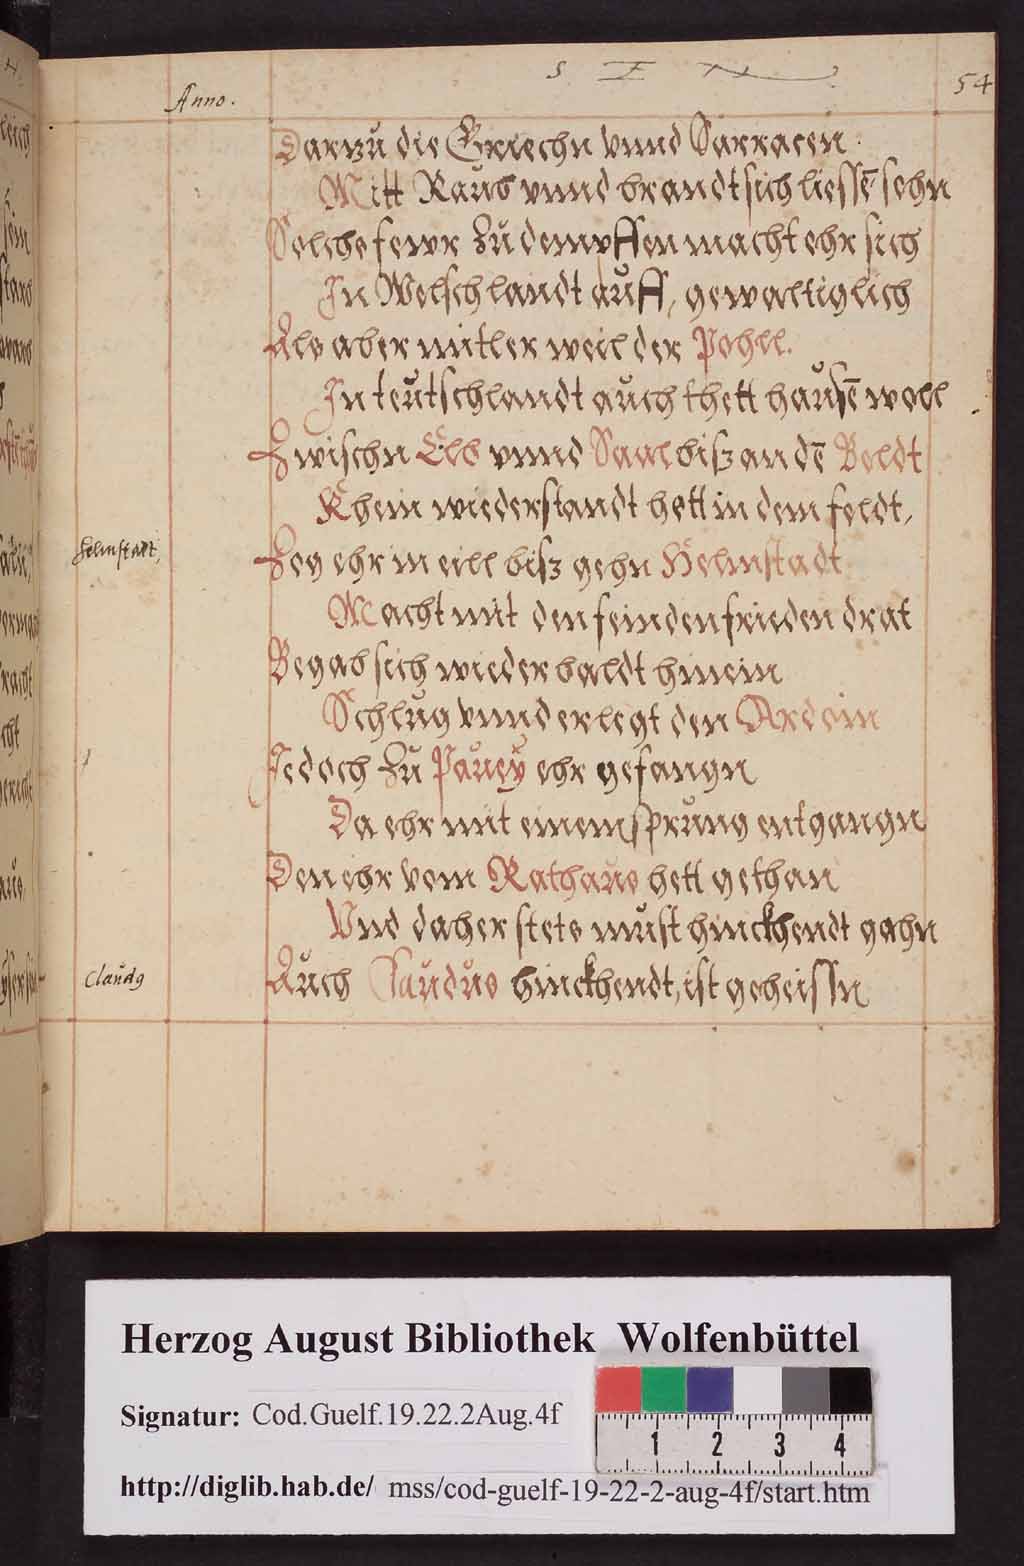 S I N
54
Anno.
Darzu die Griechn vnnd Sarracen.
Mitt Raub vnnd brandt sich liessē sehn
Solche fewr zu dempffen macht ehr sich
In Welschlandt auff, gewaltiglich
Als aber mitler weil der Pohll.
In teutschlandt auch thett hausē woll
Zwischn Elb vnnd Saal bisz an dē Beldt
Khein wiederstandt hett in dem feldt,
Helmstatt,
Zog ehr in eill bisz gehn Helmstadt
Macht mit den feinden frieden drat
Begab sich wieder baldt hinein
Schlug vnnd erlegt den Ardoin
Jedoch zu Pauey ehr gefangn
Da ehr mit einem sprung entgangn
Den ehr vom Rathaus hett gethan
Vnd daher stets must hinckhendt gahn
Claudg
Auch Claudus hinckhendt, ist geheissn
Herzog August Bibliothek Wolfenbüttel
Signatur: Cod.Guelf.19.22.2Aug.4f
1 2 3 4
http://diglib.hab.de/ mss/cod-guelf-19-22-2-aug-4f/start.htm